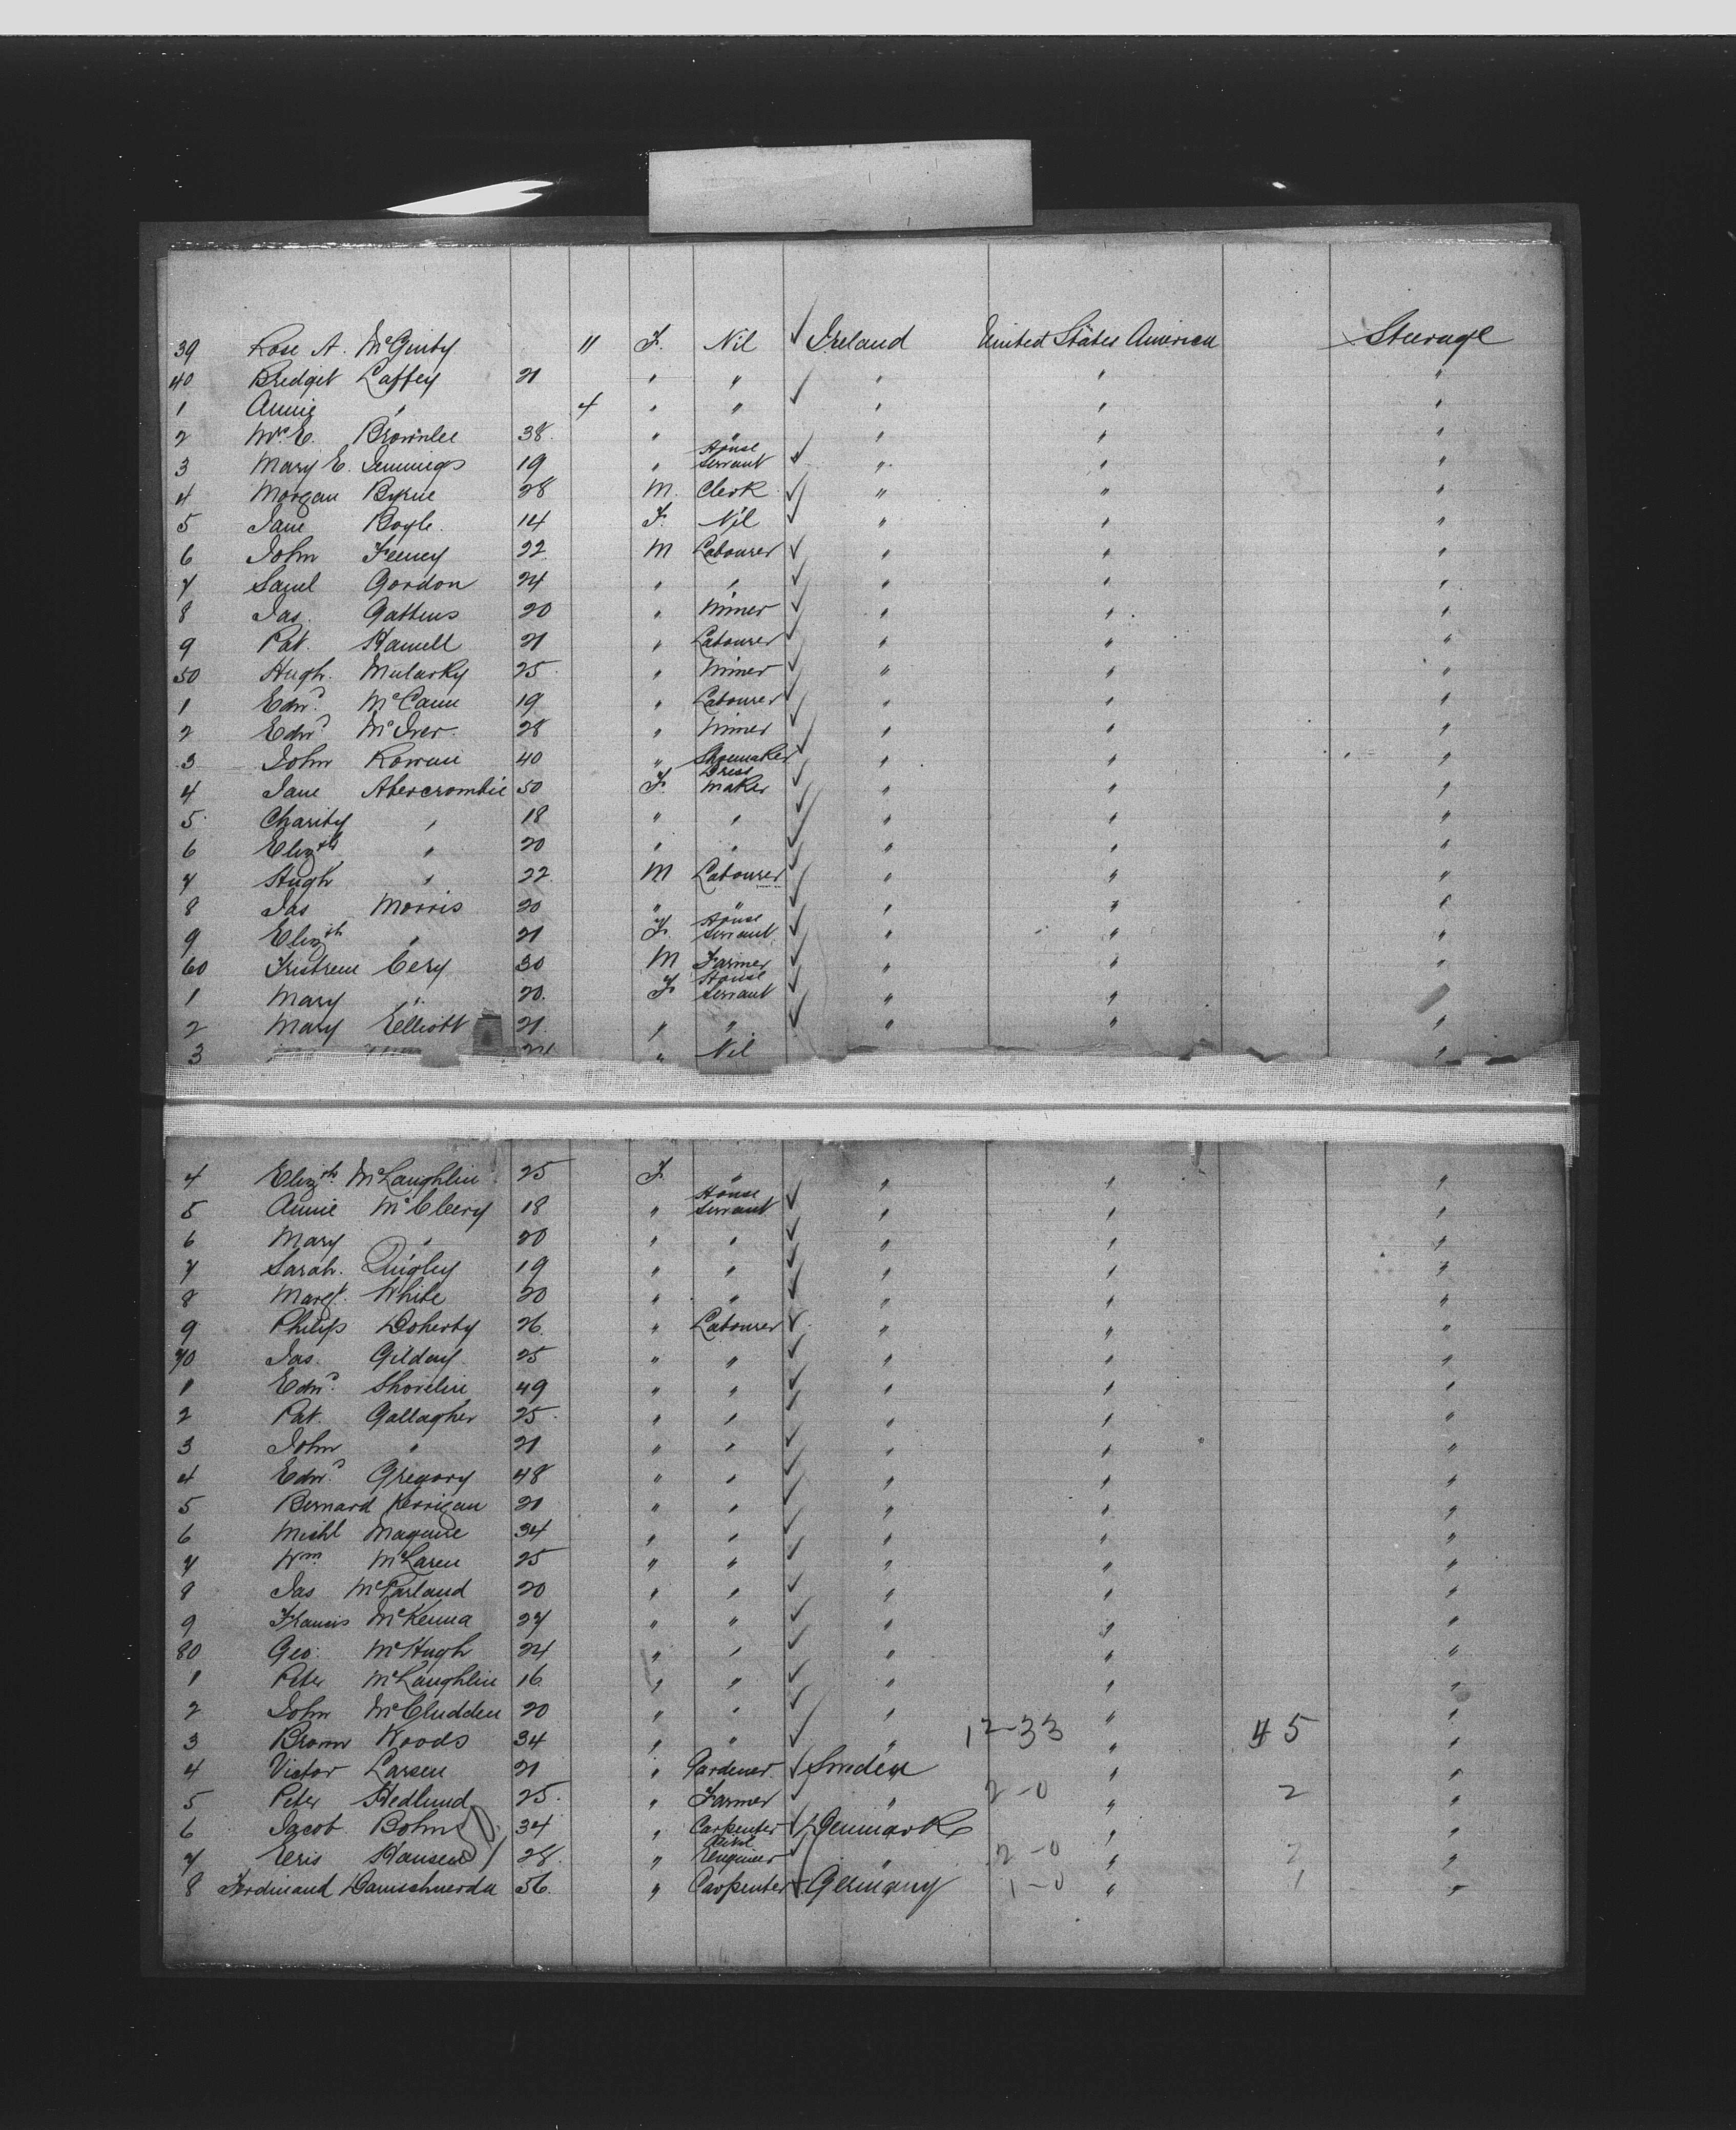 39 Rose A. McGinty 11 F. Nil ✓ Ireland United States America Steerage
40 Bridget Laffey 21 " " ✓ " " "
1 Annie " 4 " " " " "
2 Mrs E. Brownlee 38 " " " " "
3 Mary E. Jennings 19 " House Servant ✓ " " "
4 Morgan Byrne 28 M. Clerk ✓ " " "
5 Jane Boyle 14 F. Nil ✓ " " "
6 John Feeney 22 M Labourer ✓ " " "
7 Saml Gordon 24 " " ✓ " " "
8 Jas. Gattens 20 " Miner ✓ " " "
9 Pat. Hamell 21 " Labourer ✓ " " "
50 Hugh. Mularky 25 " Miner ✓ " " "
1 Edwd McCann 19 " Labourer ✓ " " "
2 Edwd McIver 28 " Miner ✓ " " "
3 John Rowan 40 " Shoemaker ✓ " " "
4 Jane Abercrombie 50 F. Dress Maker ✓ " " "
5 Charity " 18 " " ✓ " " "
6 Elizth " 20 " " ✓ " " "
7 Hugh " 22 M Labourer ✓ " " "
8 Jas Morris 20 " " ✓ " " "
9 Elizth " 21 F. House Servant ✓ " " "
60 Cery 30 M Farmer ✓ " " "
1 Mary " 20 F House Servant ✓ " "
2 Mary Elliott 21 " " ✓ " " "
3 " Nil "
4 Elizth McLaughlin 25 F. " " " "
5 Annie McCleery 18 " House Servant ✓ " " "
6 Mary " 20 " " ✓ " " "
7 Sarah. Quigley 19 " " ✓ " " "
8 Margt. White 20 " " ✓ " " "
9 Philip Doherty 26 " Labourer ✓ " " "
70 Jas. Gilday 25 " " ✓ " " "
1 Edwd Shovelin 49 " " ✓ " " "
2 Pat. Gallagher 25 " " ✓ " " "
3 John " 21 " " ✓ " " "
4 Edwd Gregory 48 " " ✓ " " "
5 Bernard Kerrigan 21 " " ✓ " " "
6 Michl Maguire 34 " " ✓ " " "
7 Wm McLaren 25 " " ✓ " " "
8 Jas McFarland 20 " " ✓ " " "
9 Francis McKenna 27 " " ✓ " " "
80 Geo: McHugh 24 " " ✓ " " "
1 Peter McLaughlin 16 " " ✓ " " "
2 John McCludden 20 " " ✓ " " "
3 Brown Woods 34 " " ✓ " 12-33 " 45 "
4 Victor Larsen 21 " Gardener ✓ Sweden " "
5 Peter Hedlund 25 " Farmer ✓ " 2-0 " 2 "
6 Jacob Bohn 34 " Carpenter ✓ Denmark " "
7 Hansen 28 " Civil Engineer ✓ " 2-0 " 2 "
8 Ferdinand 56 " Carpenter ✓ Germany 1-0 " 1 "